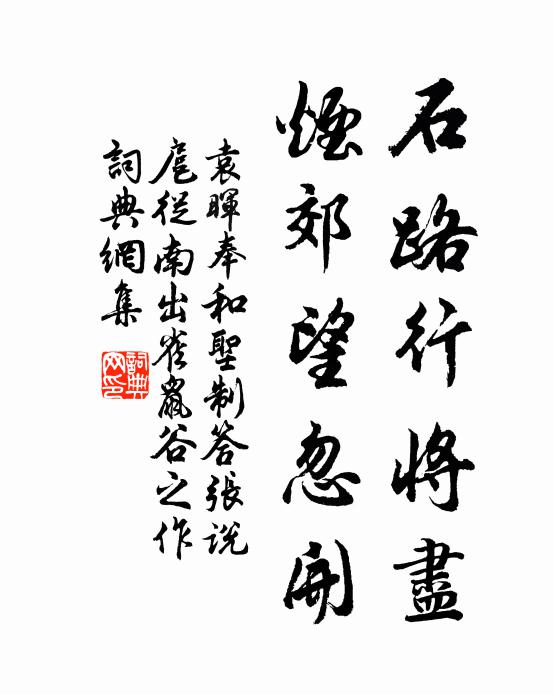 石路行將盡
煙郊望忽開
袁暉奉和聖制答張說
扈從南出雀鼠谷之作
詞典網集
詞典
网印